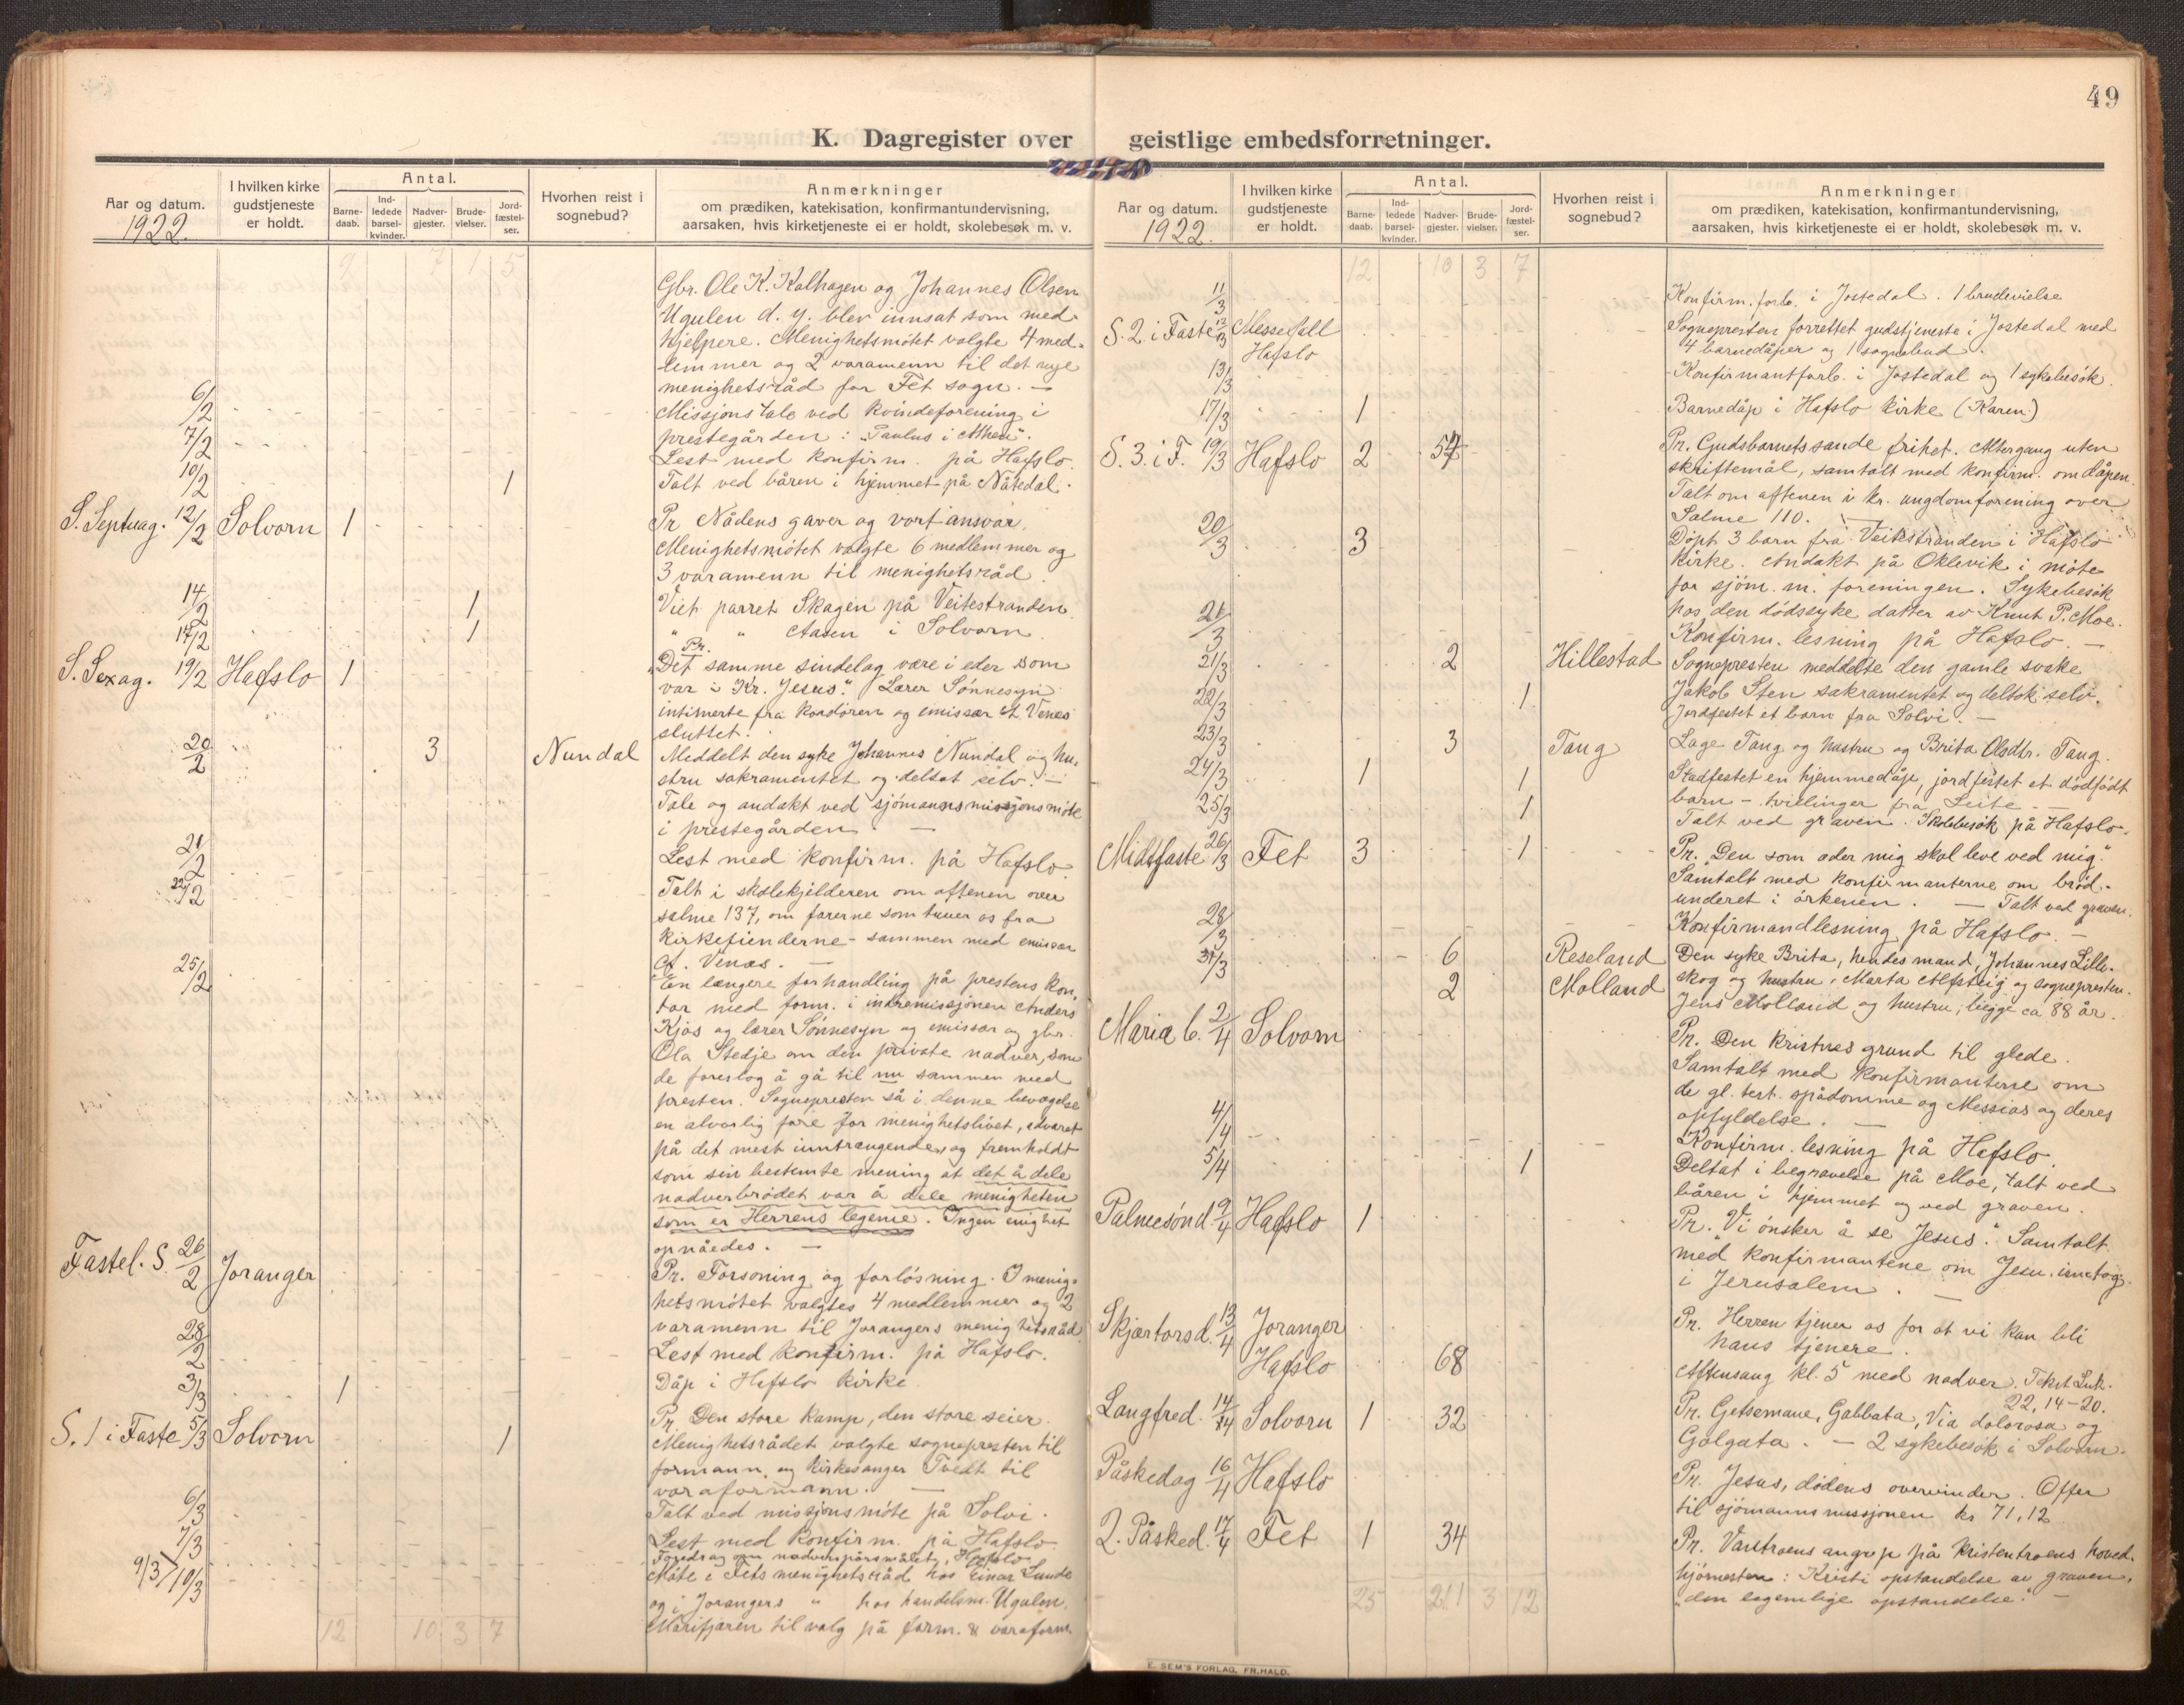 49
K. Dagregister over geistlige embedsforretninger.
Aar og datum.
1922.
I hvilken kirke
gudstjeneste
er holdt.
Antal.
Barne-
daab.
Ind-
ledede
barsel-
kvinder.
Nadver-
gjester.
Brude-
vielser.
Jord-
fæstel-
ser.
Hvorhen reist i
sognebud?
Anmerkninger
om prædiken, katekisation, konfirmantundervisning,
aarsaken, hvis kirketjeneste ei er holdt, skolebesøk m. v.
9 7 1 5
Gbr. Ole K. Kalhagen og Johannes Olsen
Ugulen d. y. blev innsat som med-
hjelpere. Menighetsmötet valgte 4 med-
lemmer og 2 varamenn til det nye
menighetsråd for Fet sogn. —
6/2 Missjonstale ved kvindeforening i
prestegården: "Paulus i Athen".
7/2 Lest med konfirm. på Hafslo.
10/2 1 Talt ved båren i hjemmet på Nåtedal.
S. Septuag. 12/2 Solvorn 1 Pr Nådens gaver og vort ansvar.
Menighetsmötet valgte 6 medlemmer og
3 varamenn til menighetsråd.
14/2 1 Viet parret Skagen på Veitestranden.
17/2 1 " " Aasen i Solvorn.
S. Sexag. 19/2 Hafslo 1 Pr. "Det samme sindelag være i eder som
var i Kr. Jesus." Lærer Sönnesyn
intimerte fra kordören og emissær A. Venes
sluttet.
20/2 3 Nundal Meddelt den syke Johannes Nundal og hu-
stru sakramentet og deltat selv. —
Tale og andakt ved sjömannsmissjonsmöte
i prestegården. —
21/2 Lest med konfirm. på Hafslo.
22/2 Talt i skolekjelderen om aftenen over
salme 137, om farerne som truer os fra
kirkefienderne - sammen med emissær
A. Venæs. —
25/2 En længere forhandling på prestens kon-
tor med form. i indremissjonen Anders
Kjös og lærer Sönnesyn og emissær og gbr.
Ola Stedje om den private nadver, som
de foreslog å gå til nu sammen med
presten. Sognepresten så i denne bevægelse
en alvorlig fare for menighetslivet, advaret
på det mest inntrængende, og fremholdt
som sin bestemte mening at det å dele
nadverbrödet var å dele menigheten
som er Herrens legeme. Ingen enighet
opnåedes. —
Fastel. S. 26/2 Joranger Pr. Forsoning og forlösning. I menig-
hetsmötet valgtes 4 medlemmer og 2
varamenn til Jorangers menighetsråd.
28/2 Lest med konfirm. på Hafslo.
3/3 1 Dåp i Hafslo kirke.
S. 1 i Faste 5/3 Solvorn 1 Pr. Den store kamp, den store seier.
Menighetsrådet valgte sognepresten til
formann, og kirkesanger Tvedt til
varaformann. —
6/3 Talt ved missjonsmöte på Solvi.
7/3 Lest med konfirm. på Hafslo.
Foredrag om nadverspörsmålet, Hafslo
9/3 10/3 Möte i Fets menighetsråd hos Einar Lunde
og i Jorangers " hos handelsm. Ugulen.
Marifjæren til valg på form. & varaform.
12 10 3 7
Aar og datum.
1922.
I hvilken kirke
gudstjeneste
er holdt.
Antal.
Barne-
daab.
Ind-
ledede
barsel-
kvinder.
Nadver-
gjester.
Brude-
vielser.
Jord-
fæstel-
ser.
Hvorhen reist i
sognebud?
Anmerkninger
om prædiken, katekisation, konfirmantundervisning,
aarsaken, hvis kirketjeneste ei er holdt, skolebesøk m. v.
12 10 3 7
11/3 Konfirm. forb. i Jostedal. 1 brudevielse
S. 2. i Faste 12/3 Messefall Hafslo Sognepresten forrettet gudstjeneste i Jostedal med
4 barnedåper og 1 sognebud.
13/3 Konfirmantforb. i Jostedal og 1 sykebesök.
17/3 1 Barnedåp i Hafslo kirke (Karen)
S. 3. i F. 19/3 Hafslo 2 54 Pr. Gudsbarnets sande frihet. Altergang uten
skriftemål, samtalt med konfirm. om dåpen.
Talt om aftenen i kr. ungdomforening over
Salme 110. —
20/3 3 Döpt 3 barn fra Veitestranden i Hafslo
kirke. Andakt på Oklevik i möte
for sjöm. m. foreningen. Sykebesök
hos den dödssyke datter av Knut P. Moe.
21/3 Konfirm. lesning på Hafslo. —
21/3 2 Hillestad Sognepresten meddelte den gamle svake
Jakob Sten sakramentet og deltok selv.
22/3 1 Jordfestet et barn fra Solvi. —
23/3 3 Tang Lage Tang og hustru og Brita Olsdtr. Tang.
24/3 1 1 Stadfestet en hjemmedåp, jordfestet et dödfödt
barn - tvillinger fra Leite. —
25/3 1 Talt ved graven. Skolebesök på Hafslo.
Midtfaste 26/3 Fet 3 1 Pr. "Den som æder mig skal leve ved mig."
Samtalt med konfirmanterne om bröd-
underet i örkenen. — Talt ved graven.
28/3 Konfirmandlesning på Hafslo. —
31/3 6 Reseland Den syke Brita, hendes mand, Johannes Lille-
skog og hustru, Marta Alfsteig og sognepresten.
2 Molland Jens Molland og hustru, begge ca 88 år.
Maria b. 2/4 Solvorn Pr. Den kristnes grund til glede.
Samtalt med konfirmanterne om
de gl. test. spådomme og Messias og deres
opfyldelse. —
4/4 Konfirm. lesning på Hafslo.
5/4 1 Deltat i begravelse på Moe, talt ved
båren i hjemmet og ved graven.
Palmesönd. 9/4 Hafslo 1 Pr. "Vi önsker å se Jesus." Samtalt
med konfirmantene om Jesu inntog
i Jerusalem. —
Skjærtorsd. 13/4 Joranger Pr. Herren tjener os for at vi kan bli
hans tjenere.
Hafslo 68 Aftensang kl. 5 med nadver. Tekst Luk.
22, 14-20.
Langfred. 14/4 Solvorn 1 32 Pr. Getsemane, Gabbata, Via dolorosa og
Golgata. — 2 sykebesök i Solvorn.
Påskedag 16/4 Hafslo Pr. Jesus, dödens overvinder. Offer
til sjömannsmissjonen kr 71,12
2. Påsked. 17/4 Fet 1 34 Pr. Vantroens angrep på kristentroens hoved-
hjörnesten: Kristi opstandelse av graven,
"den legemlige opstandelse." —
25 211 3 12
E. SEM'S FORLAG, FR.HALD.